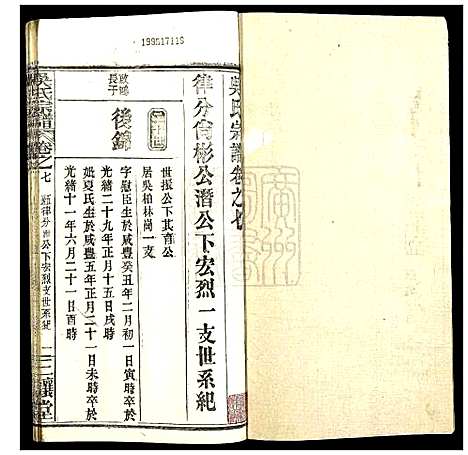 199517116
吳氏宗譜卷之七
律分尙彬公潛公下宏烈一支世系紀
世振公下其育公
居吳柏林崗一支
啟鳴
長子
後錦
字慰臣生於咸豐癸丑年二月初一日寅時卒於
光緒二十九年正月十五日戌時
妣夏氏生於咸豐五年正月二十一日未時卒於
光緒十一年六月二十一日酉時
吳氏宗譜
卷之七
律分潛公下宏烈支世系紀
一
三讓堂